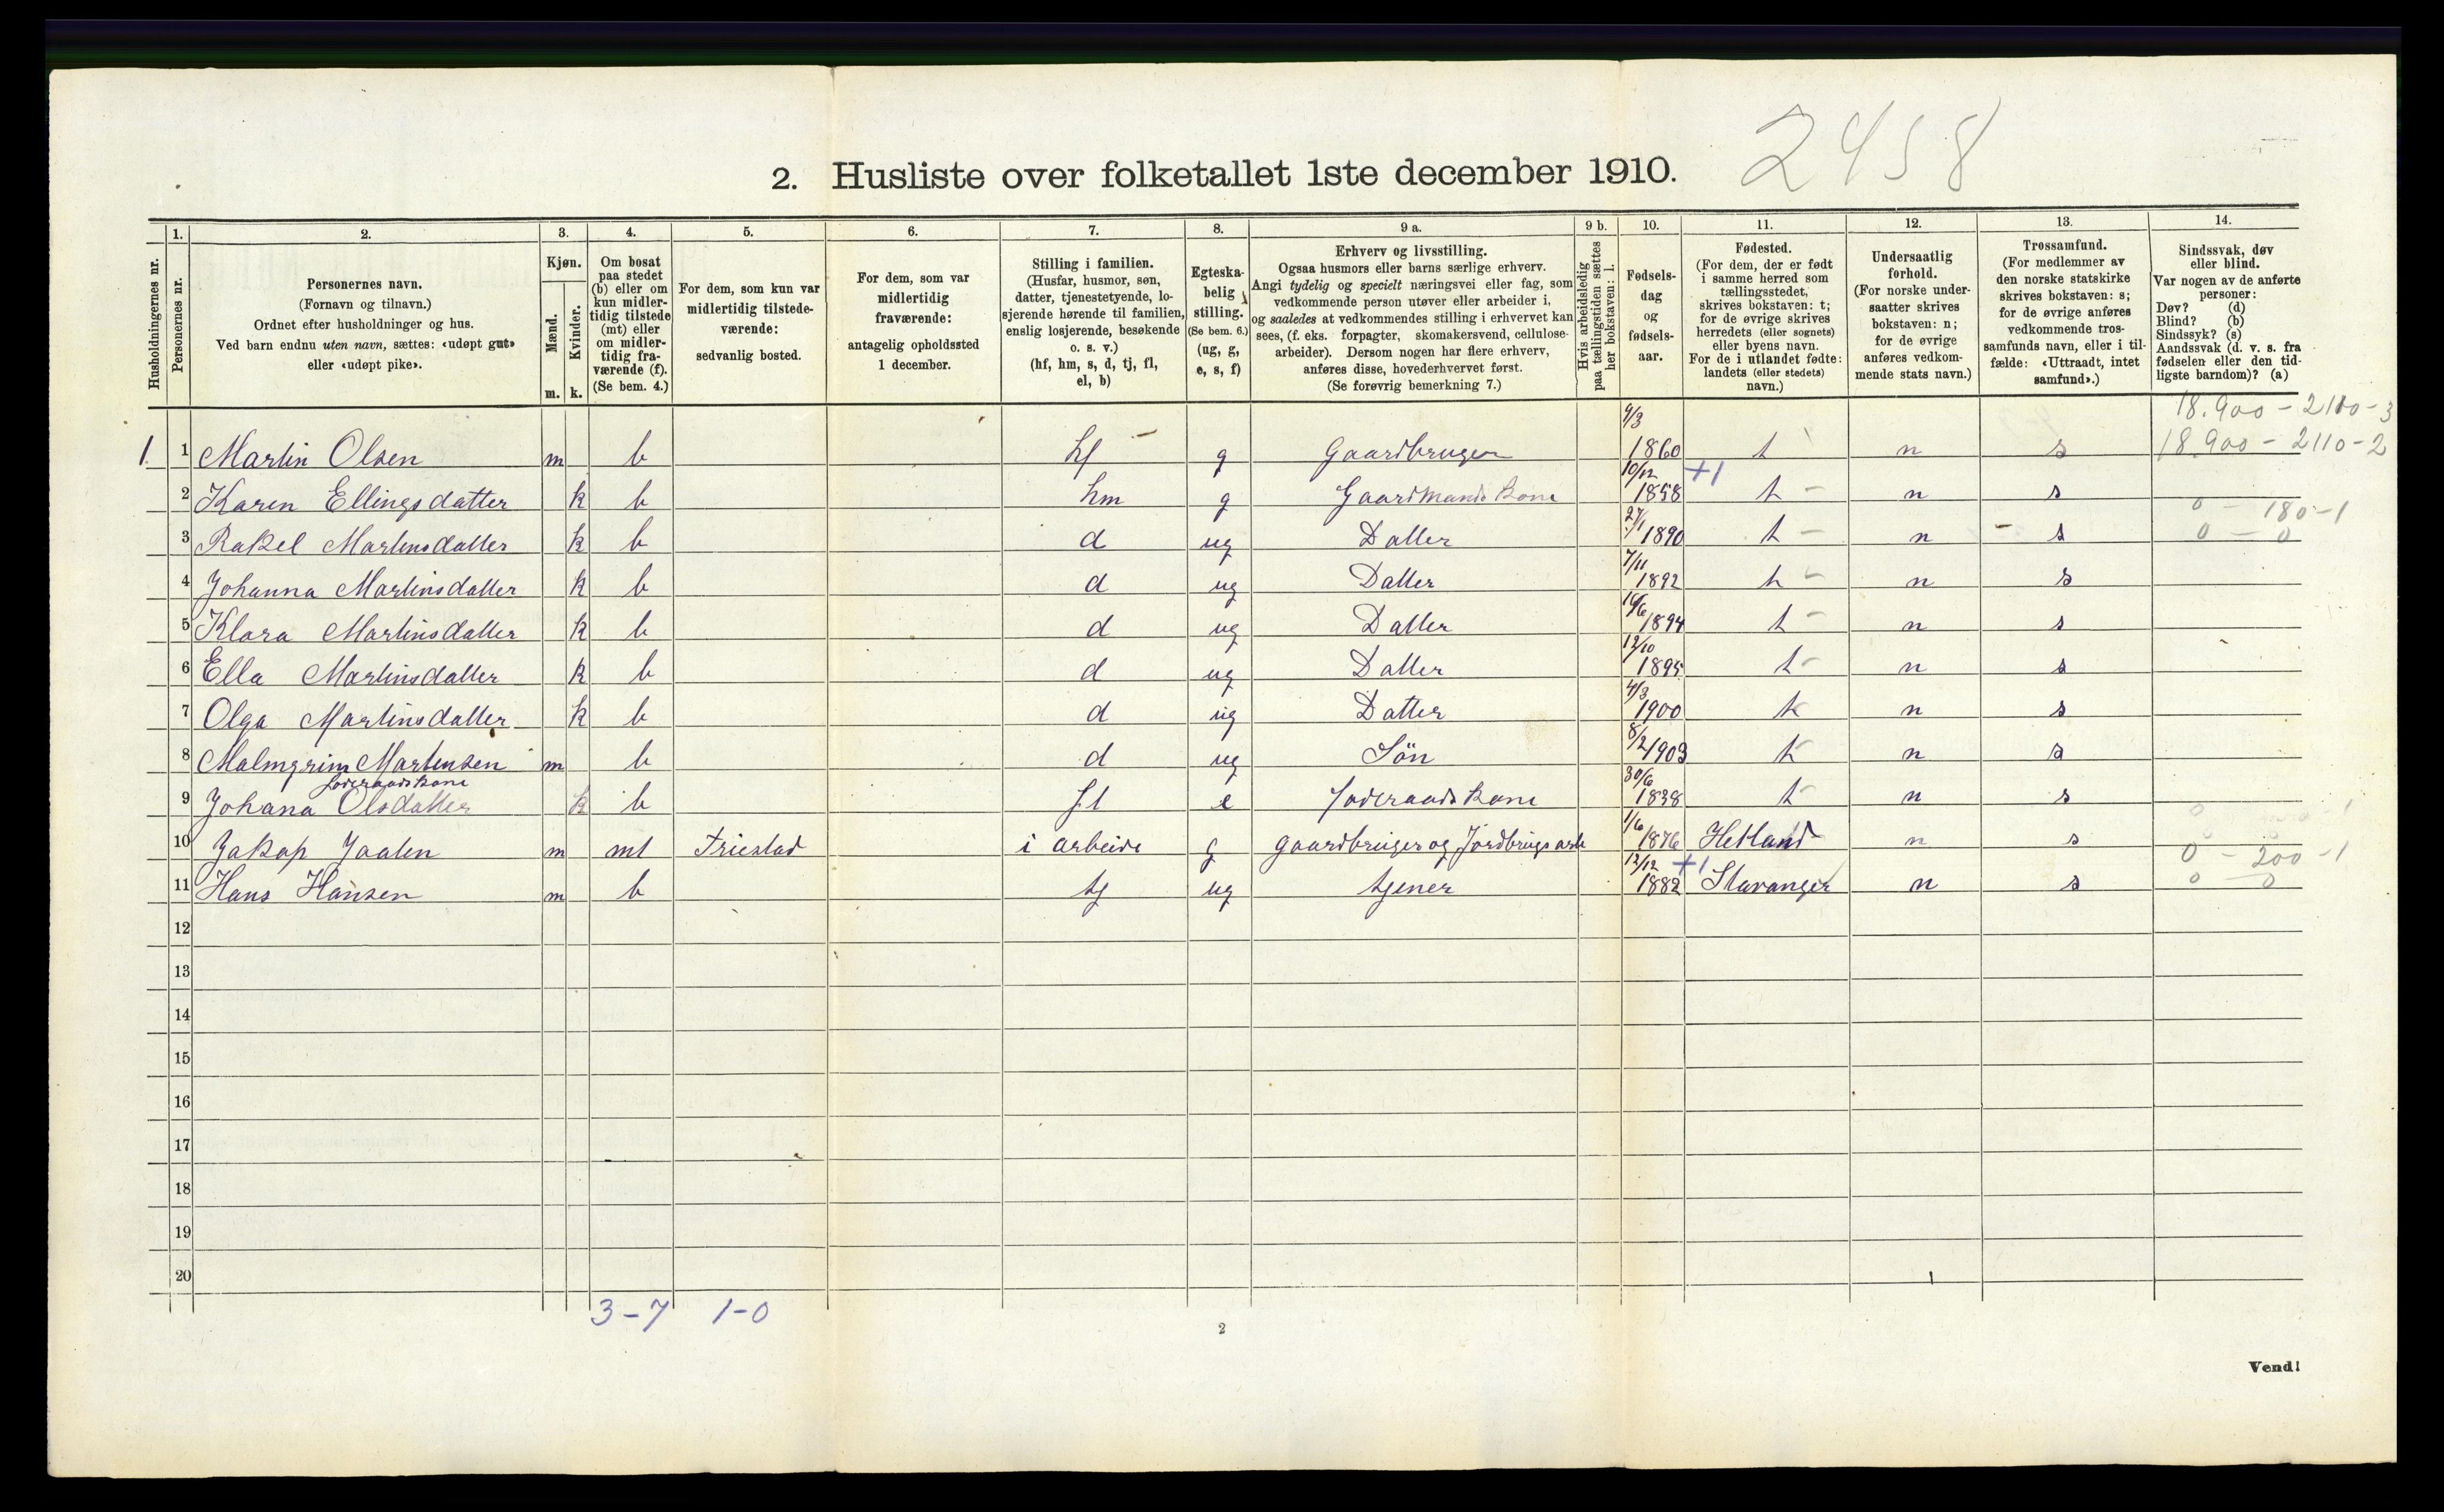 2458
2. Husliste over folketallet 1ste december 1910.
Husholdningernes nr.
1. Personernes nr.
2. Personernes navn. (Fornavn og tilnavn.) Ordnet efter husholdninger og hus. Ved barn endnu uten navn, sættes: «udøpt gut» eller «udøpt pike».
3. Kjøn. Mænd. m. Kvinder. k.
4. Om bosat paa stedet (b) eller om kun midlertidig tilstede (mt) eller om midlertidig fraværende (f). (Se bem. 4.)
5. For dem, som kun var midlertidig tilstedeværende: sedvanlig bosted.
6. For dem, som var midlertidig fraværende: antagelig opholdssted 1 december.
7. Stilling i familien. (Husfar, husmor, søn, datter, tjenestetyende, losjerende hørende til familien, enslig losjerende, besøkende o. s. v.) (hf, hm, s, d, tj, fl, el, b)
8. Egteskabelig stilling. (Se bem. 6.) (ug, g, e, s, f)
9 a. Erhverv og livsstilling. Ogsaa husmors eller barns særlige erhverv. Angi tydelig og specielt næringsvei eller fag, som vedkommende person utøver eller arbeider i, og saaledes at vedkommendes stilling i erhvervet kan sees, (f. eks. forpagter, skomakersvend, cellulosearbeider). Dersom nogen har flere erhverv, anføres disse, hovederhvervet først. (Se forøvrig bemerkning 7.)
9 b. Hvis arbeidsledig paa tællingstiden sættes her bokstaven: l.
10. Fødselsdag og fødselsaar.
11. Fødested. (For dem, der er født i samme herred som tællingsstedet, skrives bokstaven: t; for de øvrige skrives herredets (eller sognets) eller byens navn. For de i utlandet fødte: landets (eller stedets) navn.)
12. Undersaatlig forhold. (For norske undersaatter skrives bokstaven: n; for de øvrige anføres vedkommende stats navn.)
13. Trossamfund. (For medlemmer av den norske statskirke skrives bokstaven: s; for de øvrige anføres vedkommende trossamfunds navn, eller i tilfælde: «Uttraadt, intet samfund».)
14. Sindssvak, døv eller blind. Var nogen av de anførte personer: Døv? (d) Blind? (b) Sindssyk? (s) Aandssvak (d. v. s. fra fødselen eller den tidligste barndom)? (a)
18.900 - 2110 - 3
1. 1 Martin Olsen m b hf g Gaardbruger 9/3 1860 t n s 18.900 - 2110 - 2
2 Karen Ellingsdatter k b hm g Gaardmands Kone 10/12 1858 +1 t n s
0 - 180 - 1
3 Rakel Martinsdatter k b d ug Datter 27/1 1890 t n s 0 - 0
4 Johanna Martinsdatter k b d ug Datter 7/11 1892 t n s
5 Klara Martinsdatter k b d ug Datter 16/6 1894 t n s
6 Ella Martinsdatter k b d ug Datter 12/10 1895 t n s
7 Olga Martinsdatter k b d ug Datter 4/3 1900 t n s
8 Malmgrim Martinsen m b d ug Sön 8/2 1903 t n s
Foderaadskone
9 Johana Olsdatter k b fl e Foderaads Kone 30/6 1838 t n s
10 Jakop Joalen m mt Friestad i arbeide g gaardbruger og Jordbrugs arb 1/6 1876 Hetland n s
0 - 200 - 1
11 Hans Hansen m b tj ug tjener 12/12 1882 +1 Stavanger n s 0 - 0
12
13
14
15
16
17
18
19
20
3 - 7 1 - 0
2
Vend!